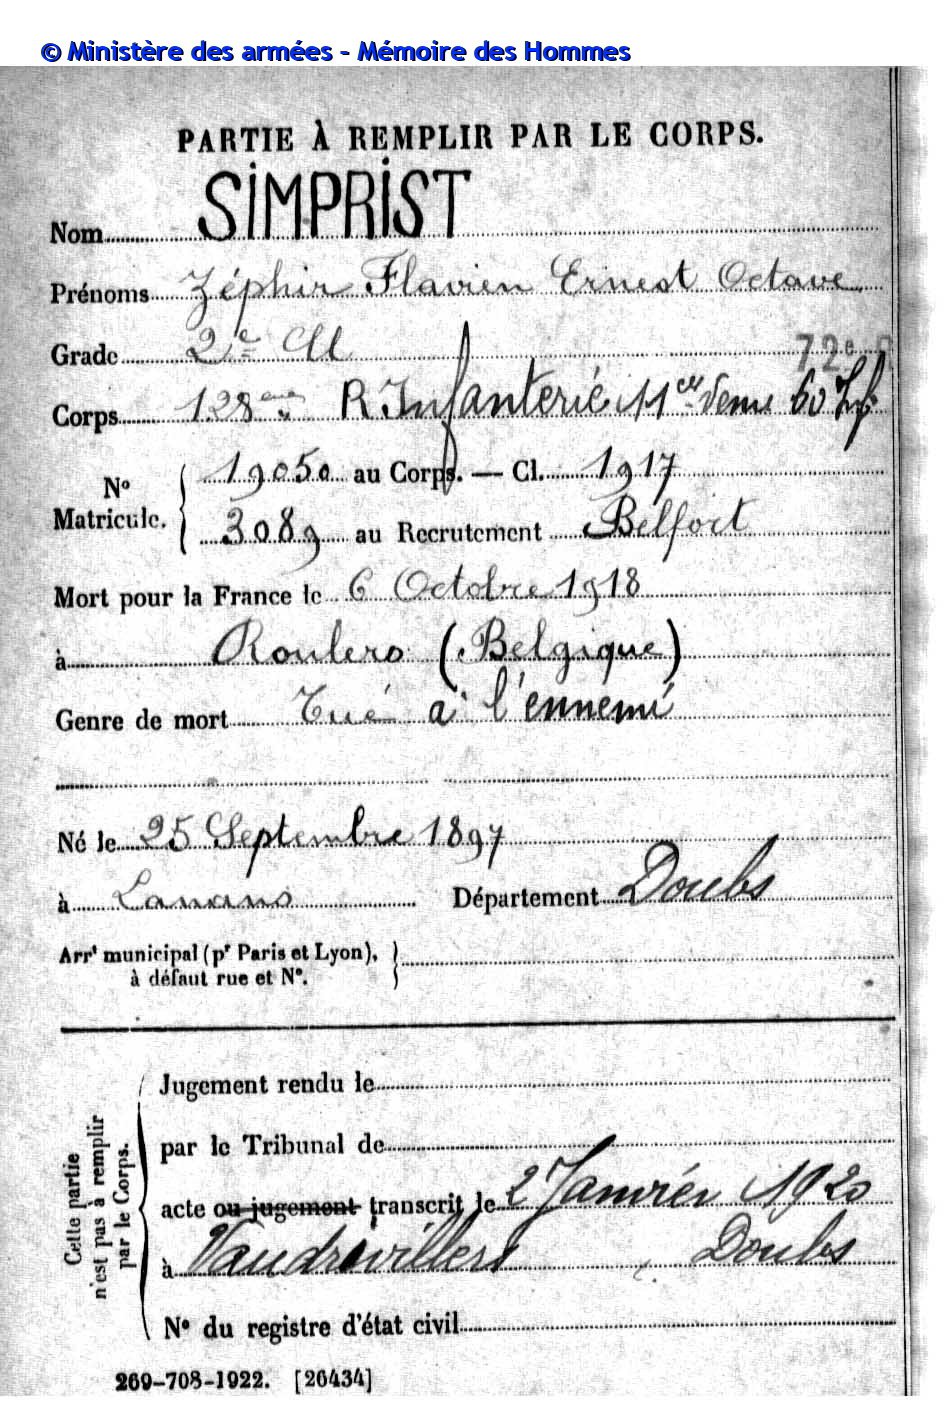 © Ministère des armées - Mémoire des Hommes
PARTIE À REMPLIR PAR LE CORPS.
Nom SIMPRIST
Prénoms Zéphir Flavien Ernest Octave
Grade 2e Cl
72e
Corps 128ème R Infanterie 60 Inf
Nº Matricule. 19050 au Corps. — Cl. 1917
3089 au Recrutement Belfort
Mort pour la France le 6 Octobre 1918
à Roulers (Belgique)
Genre de mort Tué à l'ennemi
Né le 25 Septembre 1897
à Lanans Département Doubs
Arrt municipal (pr Paris et Lyon),
à défaut rue et Nº.
Cette partie
n'est pas à remplir
par le Corps.
Jugement rendu le
par le Tribunal de
acte ou jugement transcrit le 2 Janvier 1920
à Vaudrivillers Doubs
Nº du registre d'état civil
269-708-1922. [26434]